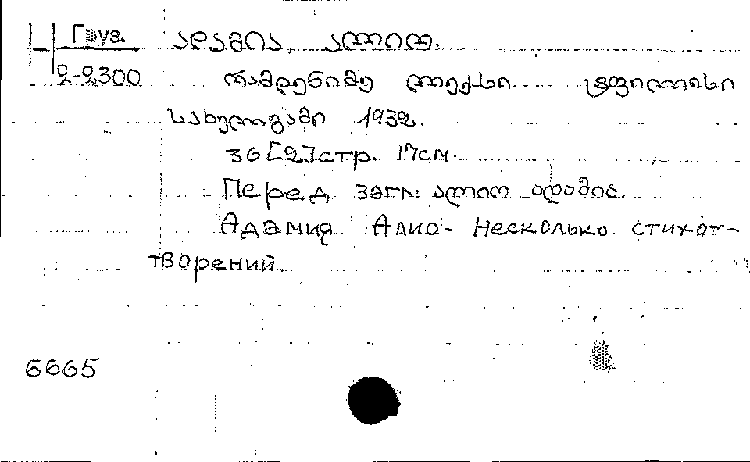 Груз. ადამია, ალიო.
2-2300 რამდენიმე ლექსი. ტფილისი
სახელგამი 1932.
36 [2] стр. 17см.
Перед загл: ალიო ადამია.
Адамия Алио- Несколько стихот-
ворений.
6665